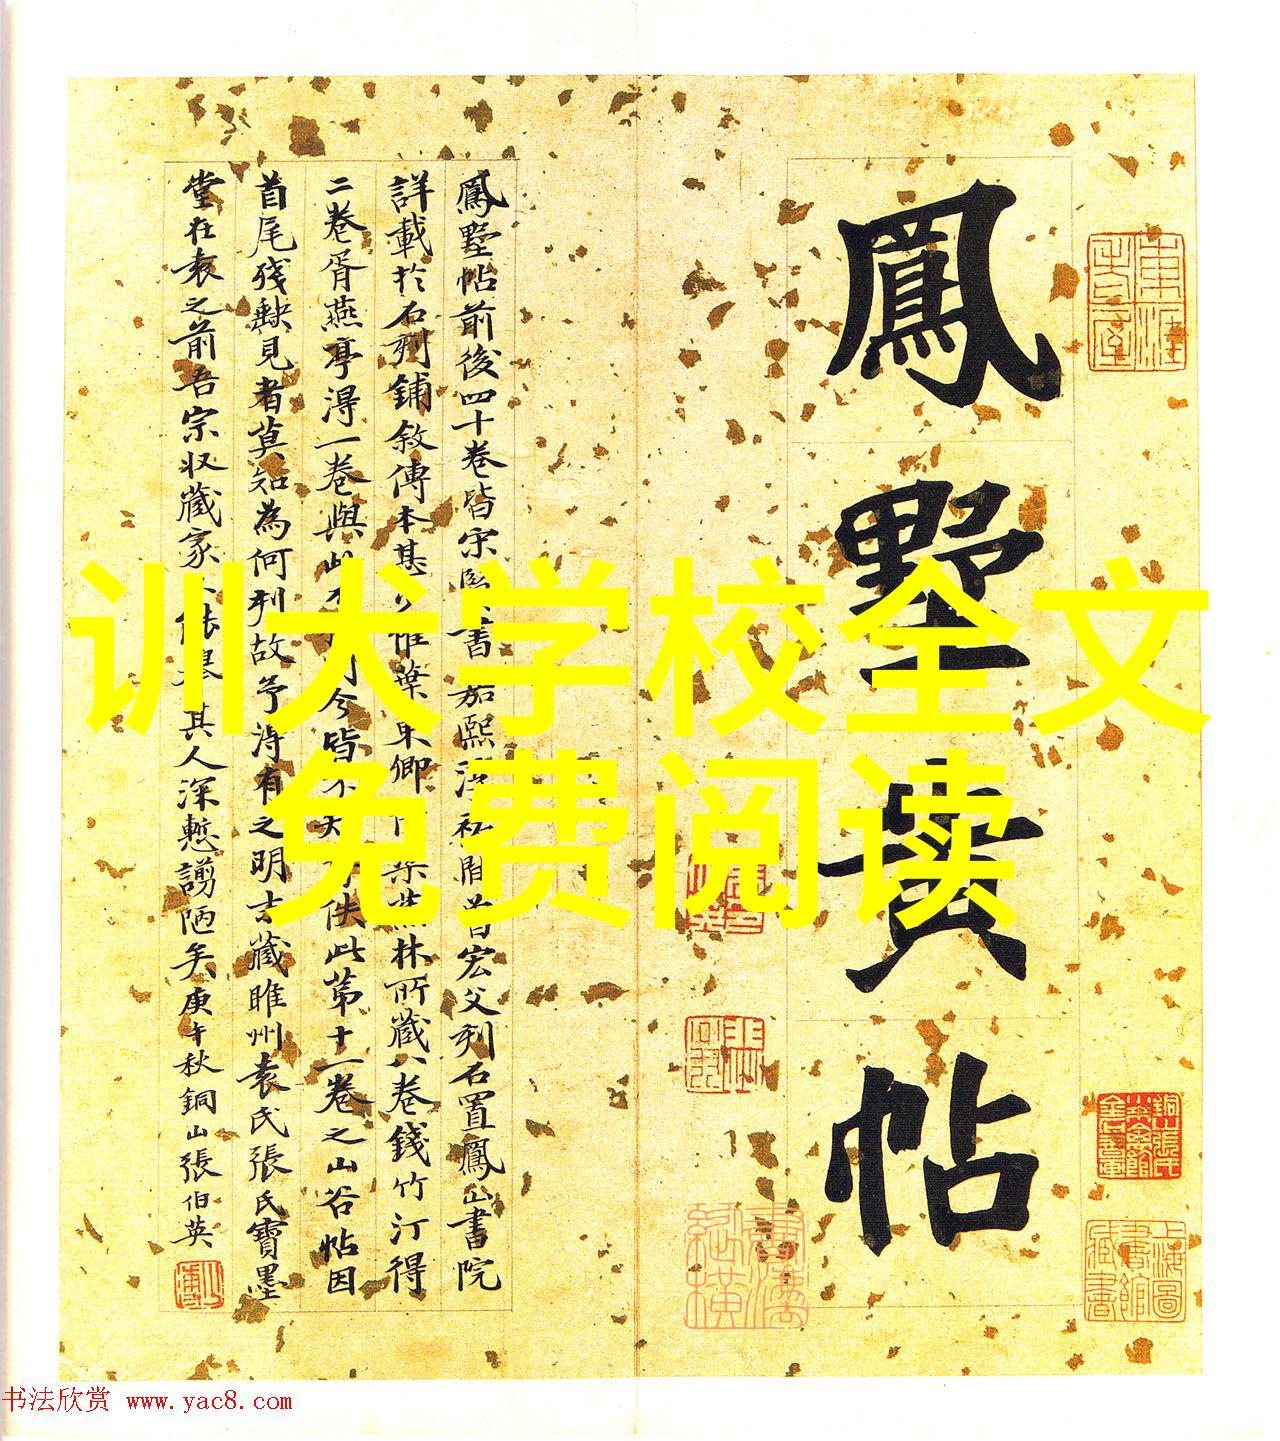 鳳墅貴帖
鳳墅帖前後四十卷皆宋 書 嘉熙淳 曾宏父刻石置鳳山書院
詳載於石刻鋪敘傳本甚少惟葉東卿 林所藏八卷錢竹汀得
二卷胥燕亭得一卷與此 今皆不 佚此第十一卷之山谷帖因
首尾殘缺見者莫知為何刻故予得有之明吉藏睢州袁氏張氏寶墨
堂在袁之前吾宗收藏家 其人深慙謭陋矣庚午秋銅山張伯英
训犬学校全文
免费阅读
上海圖書館藏書
书法欣赏 www.yac8.com